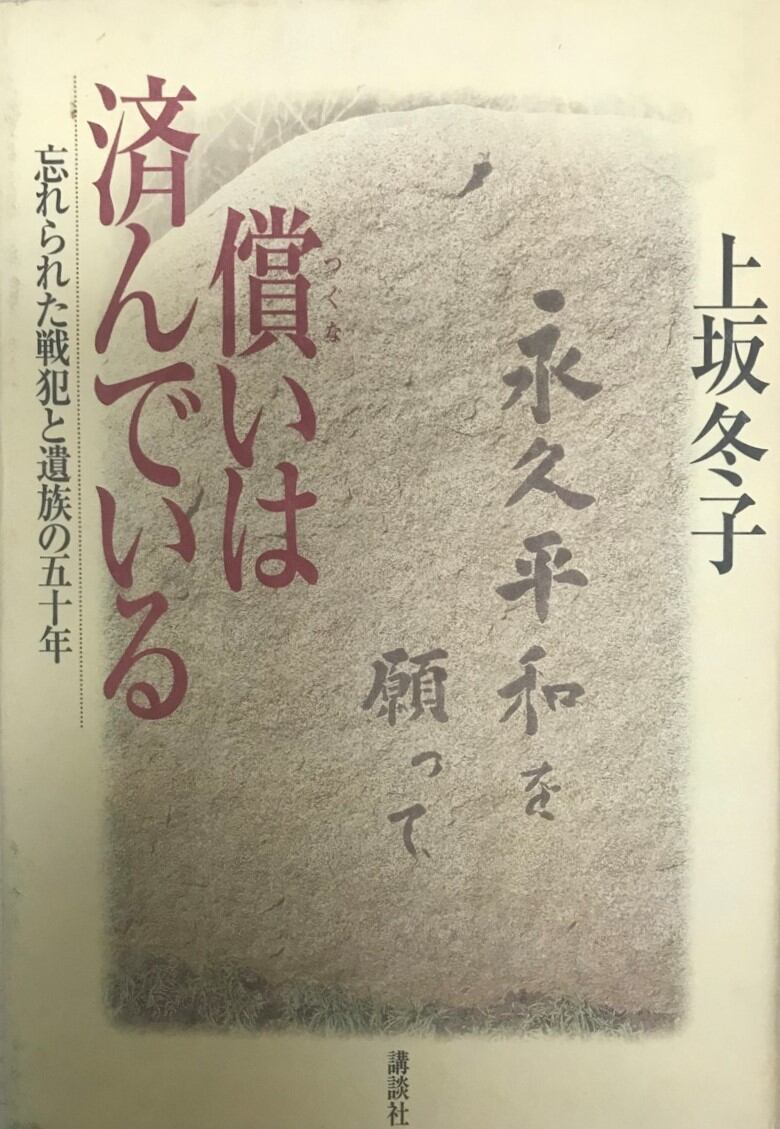 上坂冬子
永久平和を
願って
償いは
つくな
済んでいる
忘れられた戦犯と遺族の五十年
講談社